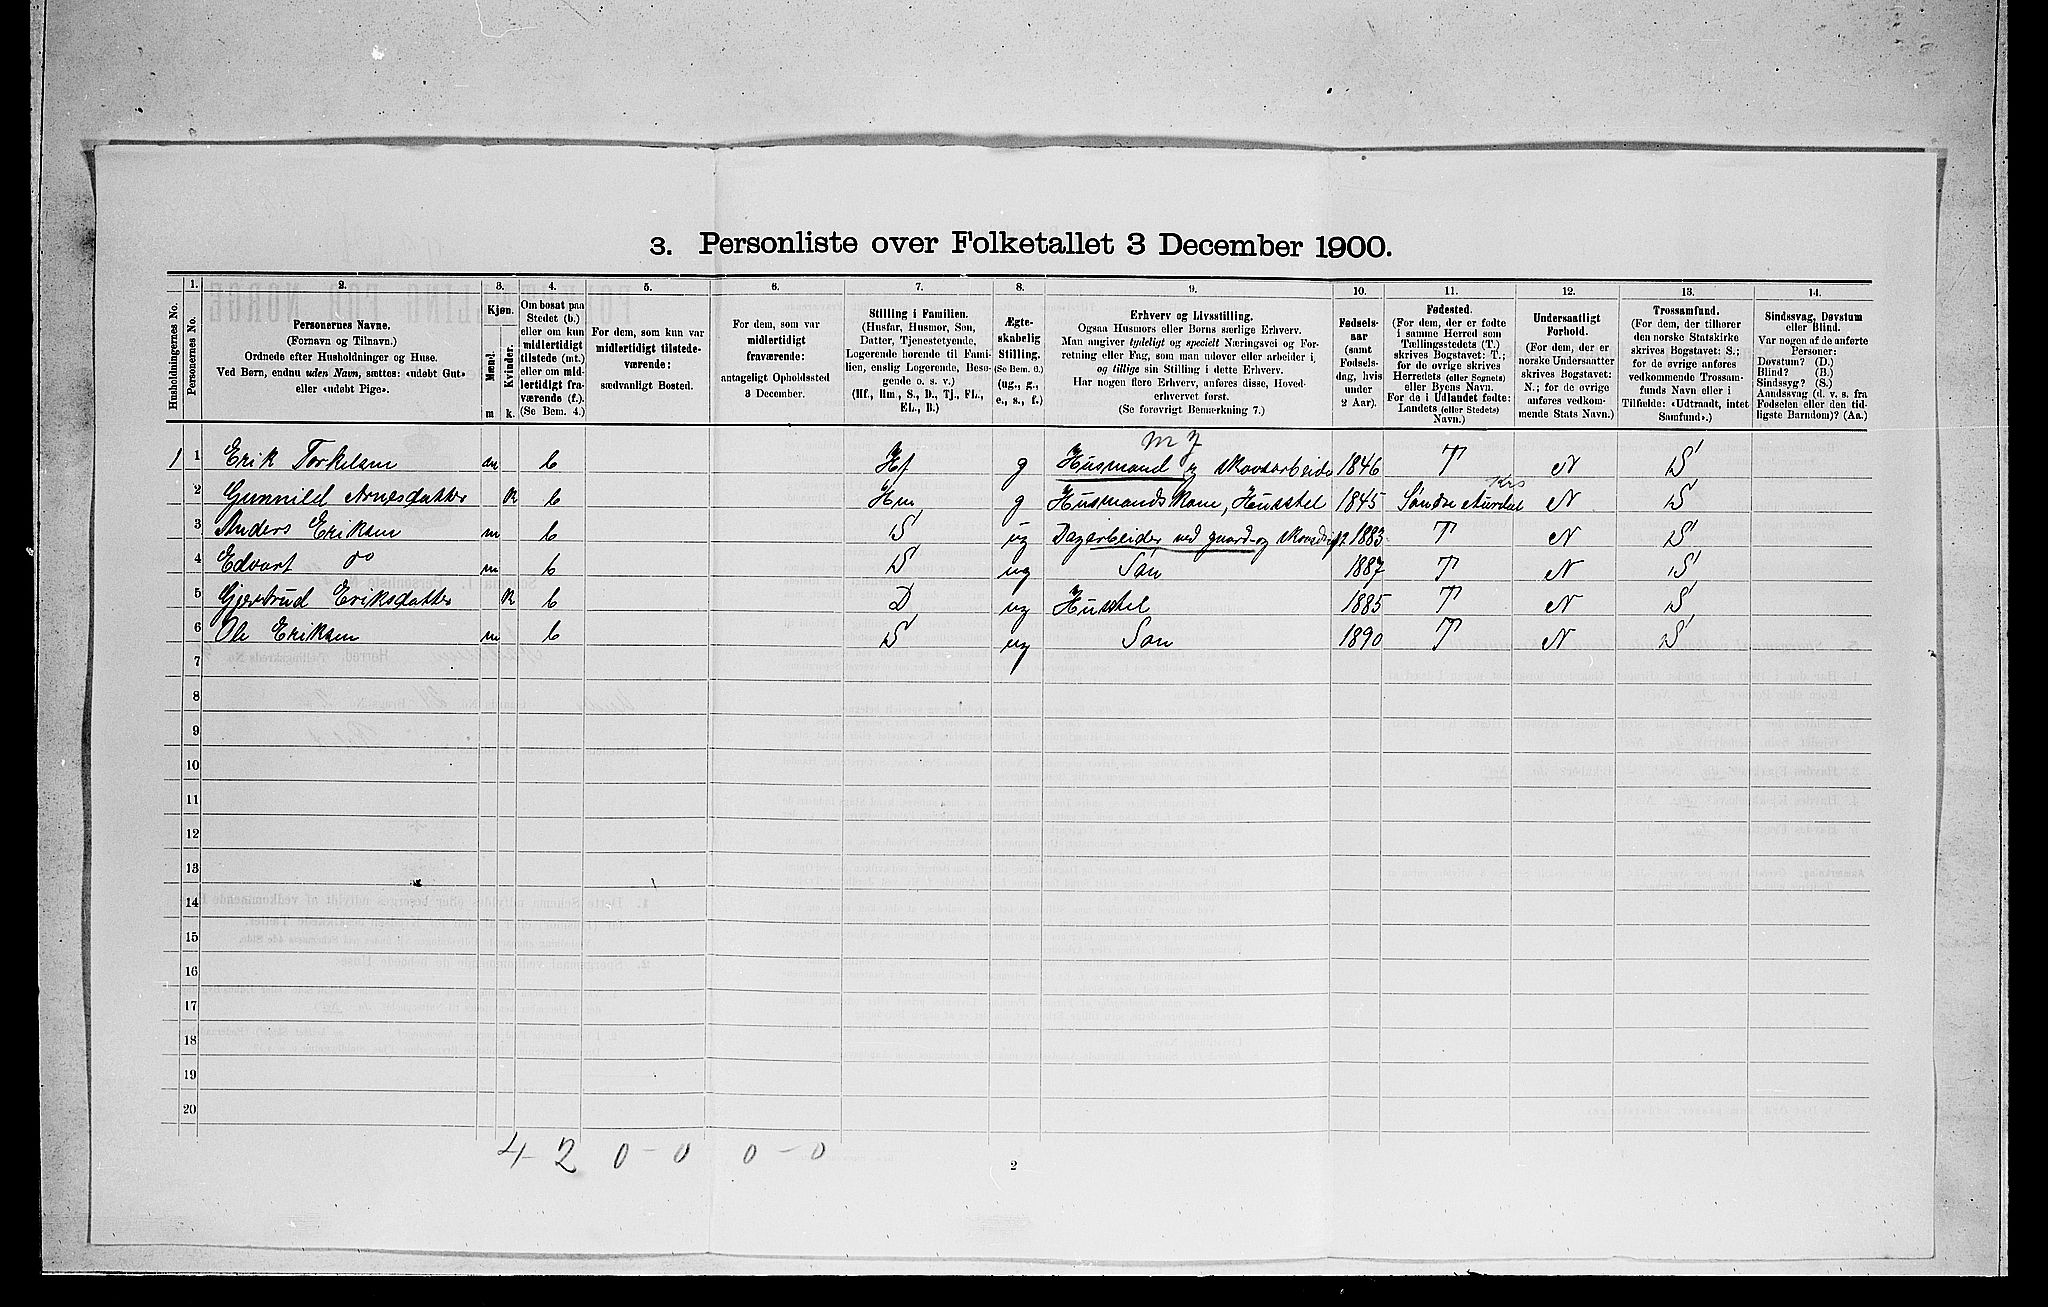 3. Personliste over Folketallet 3 December 1900.
Husholdningernes No.
1.
Personernes No.
2.
Personernes Navne.
(Fornavn og Tilnavn.)
Ordnede efter Husholdninger og Huse.
Ved Børn, endnu uden Navn, sættes: «udøbt Gut»
eller «udøbt Pige».
3.
Kjøn.
Mænd.
Kvinder.
m k.
4.
Om bosat paa
Stedet (b.)
eller om kun
midlertidigt
tilstede (mt.)
eller om mid-
lertidigt fra-
værende (f.).
(Se Bem. 4.)
5.
For dem, som kun var
midlertidigt tilstede-
værende:
sædvanligt Bosted.
6.
For dem, som var
midlertidigt
fraværende:
antageligt Opholdssted
3 December.
7.
Stilling i Familien.
(Husfar, Husmor, Søn,
Datter, Tjenestetyende,
Logerende hørende til Fami-
lien, enslig Logerende, Besø-
gende o. s. v.)
(Hf., Hm., S., D., Tj., FL.,
EL., B.)
8.
Ægte-
skabelig
Stilling.
(Se Bem. 6.)
(ug., g.,
e., s., f.)
9.
Erhverv og Livsstilling.
Ogsaa Husmors eller Børns særlige Erhverv.
Man angiver tydeligt og specielt Næringsvei og For-
retning eller Fag, som man udøver eller arbeider i,
og tillige sin Stilling i dette Erhverv.
Har nogen flere Erhverv, anføres disse, Hoved-
erhvervet først.
(Se forøvrigt Bemerkning 7.)
10.
Fødsels-
aar
(samt
Fødsels-
dag, hvis
under
2 Aar).
11.
Fødested.
(For dem, der er fødte
i samme Herred som
Tællingsstedets (T.)
skrives Bogstavet: T.;
for de øvrige skrives
Herredets (eller Sognets)
eller Byens Navn.
For de i Udlandet fødte:
Landets (eller Stedets)
Navn.)
12.
Undersaatligt
Forhold.
(For dem, der er
norske Undersaatter
skrives Bogstavet:
N.; for de øvrige
anføres vedkom-
mende Stats Navn.)
13.
Trossamfund.
(For dem, der tilhører
den norske Statskirke
skrives Bogstavet: S.;
for de øvrige anføres
vedkommende Trossam-
funds Navn eller i
Tilfælde: «Udtraadt, intet
Samfund».)
14.
Sindssvag, Døvstum
eller Blind.
Var nogen af de anførte
Personer:
Døvstum? (D.)
Blind? (B.)
Sindssyg? (S.)
Aandssvag (d. v. s. fra
Fødselen eller den tid-
ligste Barndom)? (Aa.)
1 1 Erik Torkelsen m b Hf g Husmand og skovarbeider 1846 T N S
2 Gunnild Arnesdatter k b Hm g Husmandskone, Husstel 1845 Søndre Aurdal Krs N S
3 Anders Eriksen m b S ug Dagarbeider ved gaard- og skovsdrift. 1883 T N S
4 Edvart do m b S ug Søn 1887 T N S
5 Gjertrud Eriksdatter k b D ug Husstel 1885 T N S
6 Ole Eriksen m b S ug Søn 1890 T N S
7
8
9
10
11
12
13
14
15
16
17
18
19
20
4 - 2 0 - 0 0 - 0
2